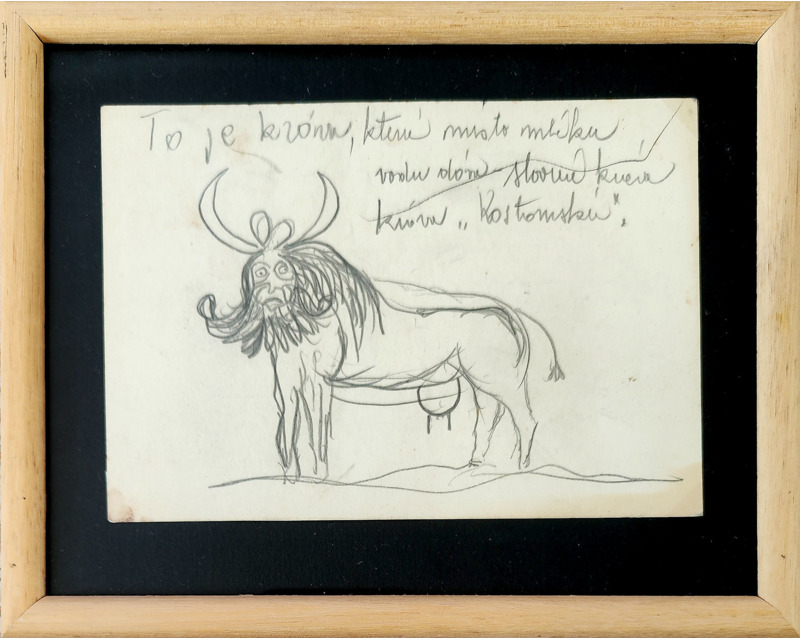 To je kráva, která misto mléka
vodu dává slavná kráva
kráva „Kostomská".